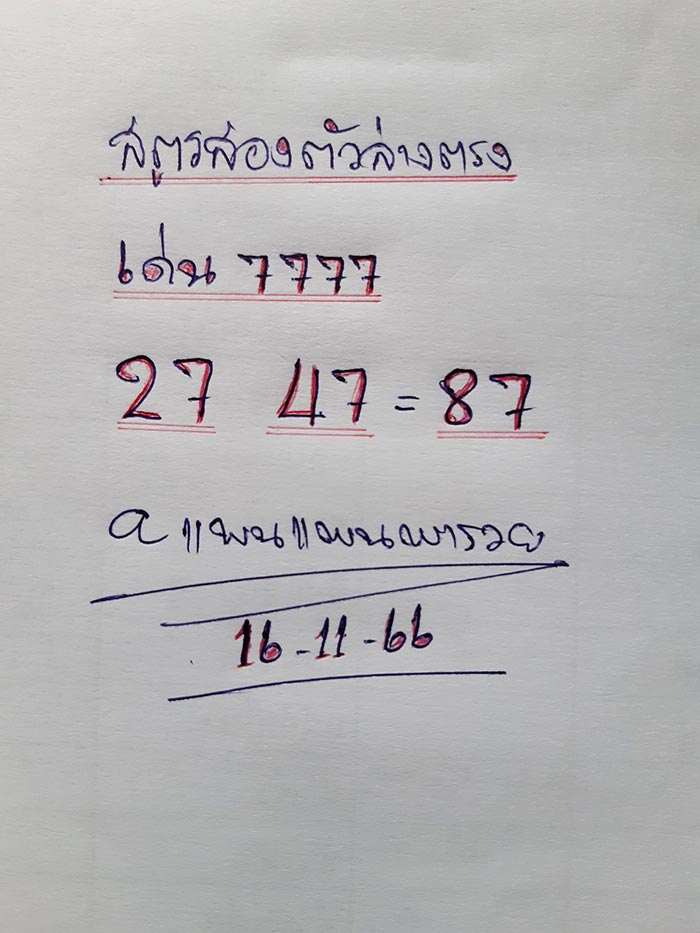 สูตรสองตัวล่างตรง
เด่น 7777
27 47 = 87
a แมนแมนพารวย
16-11-66